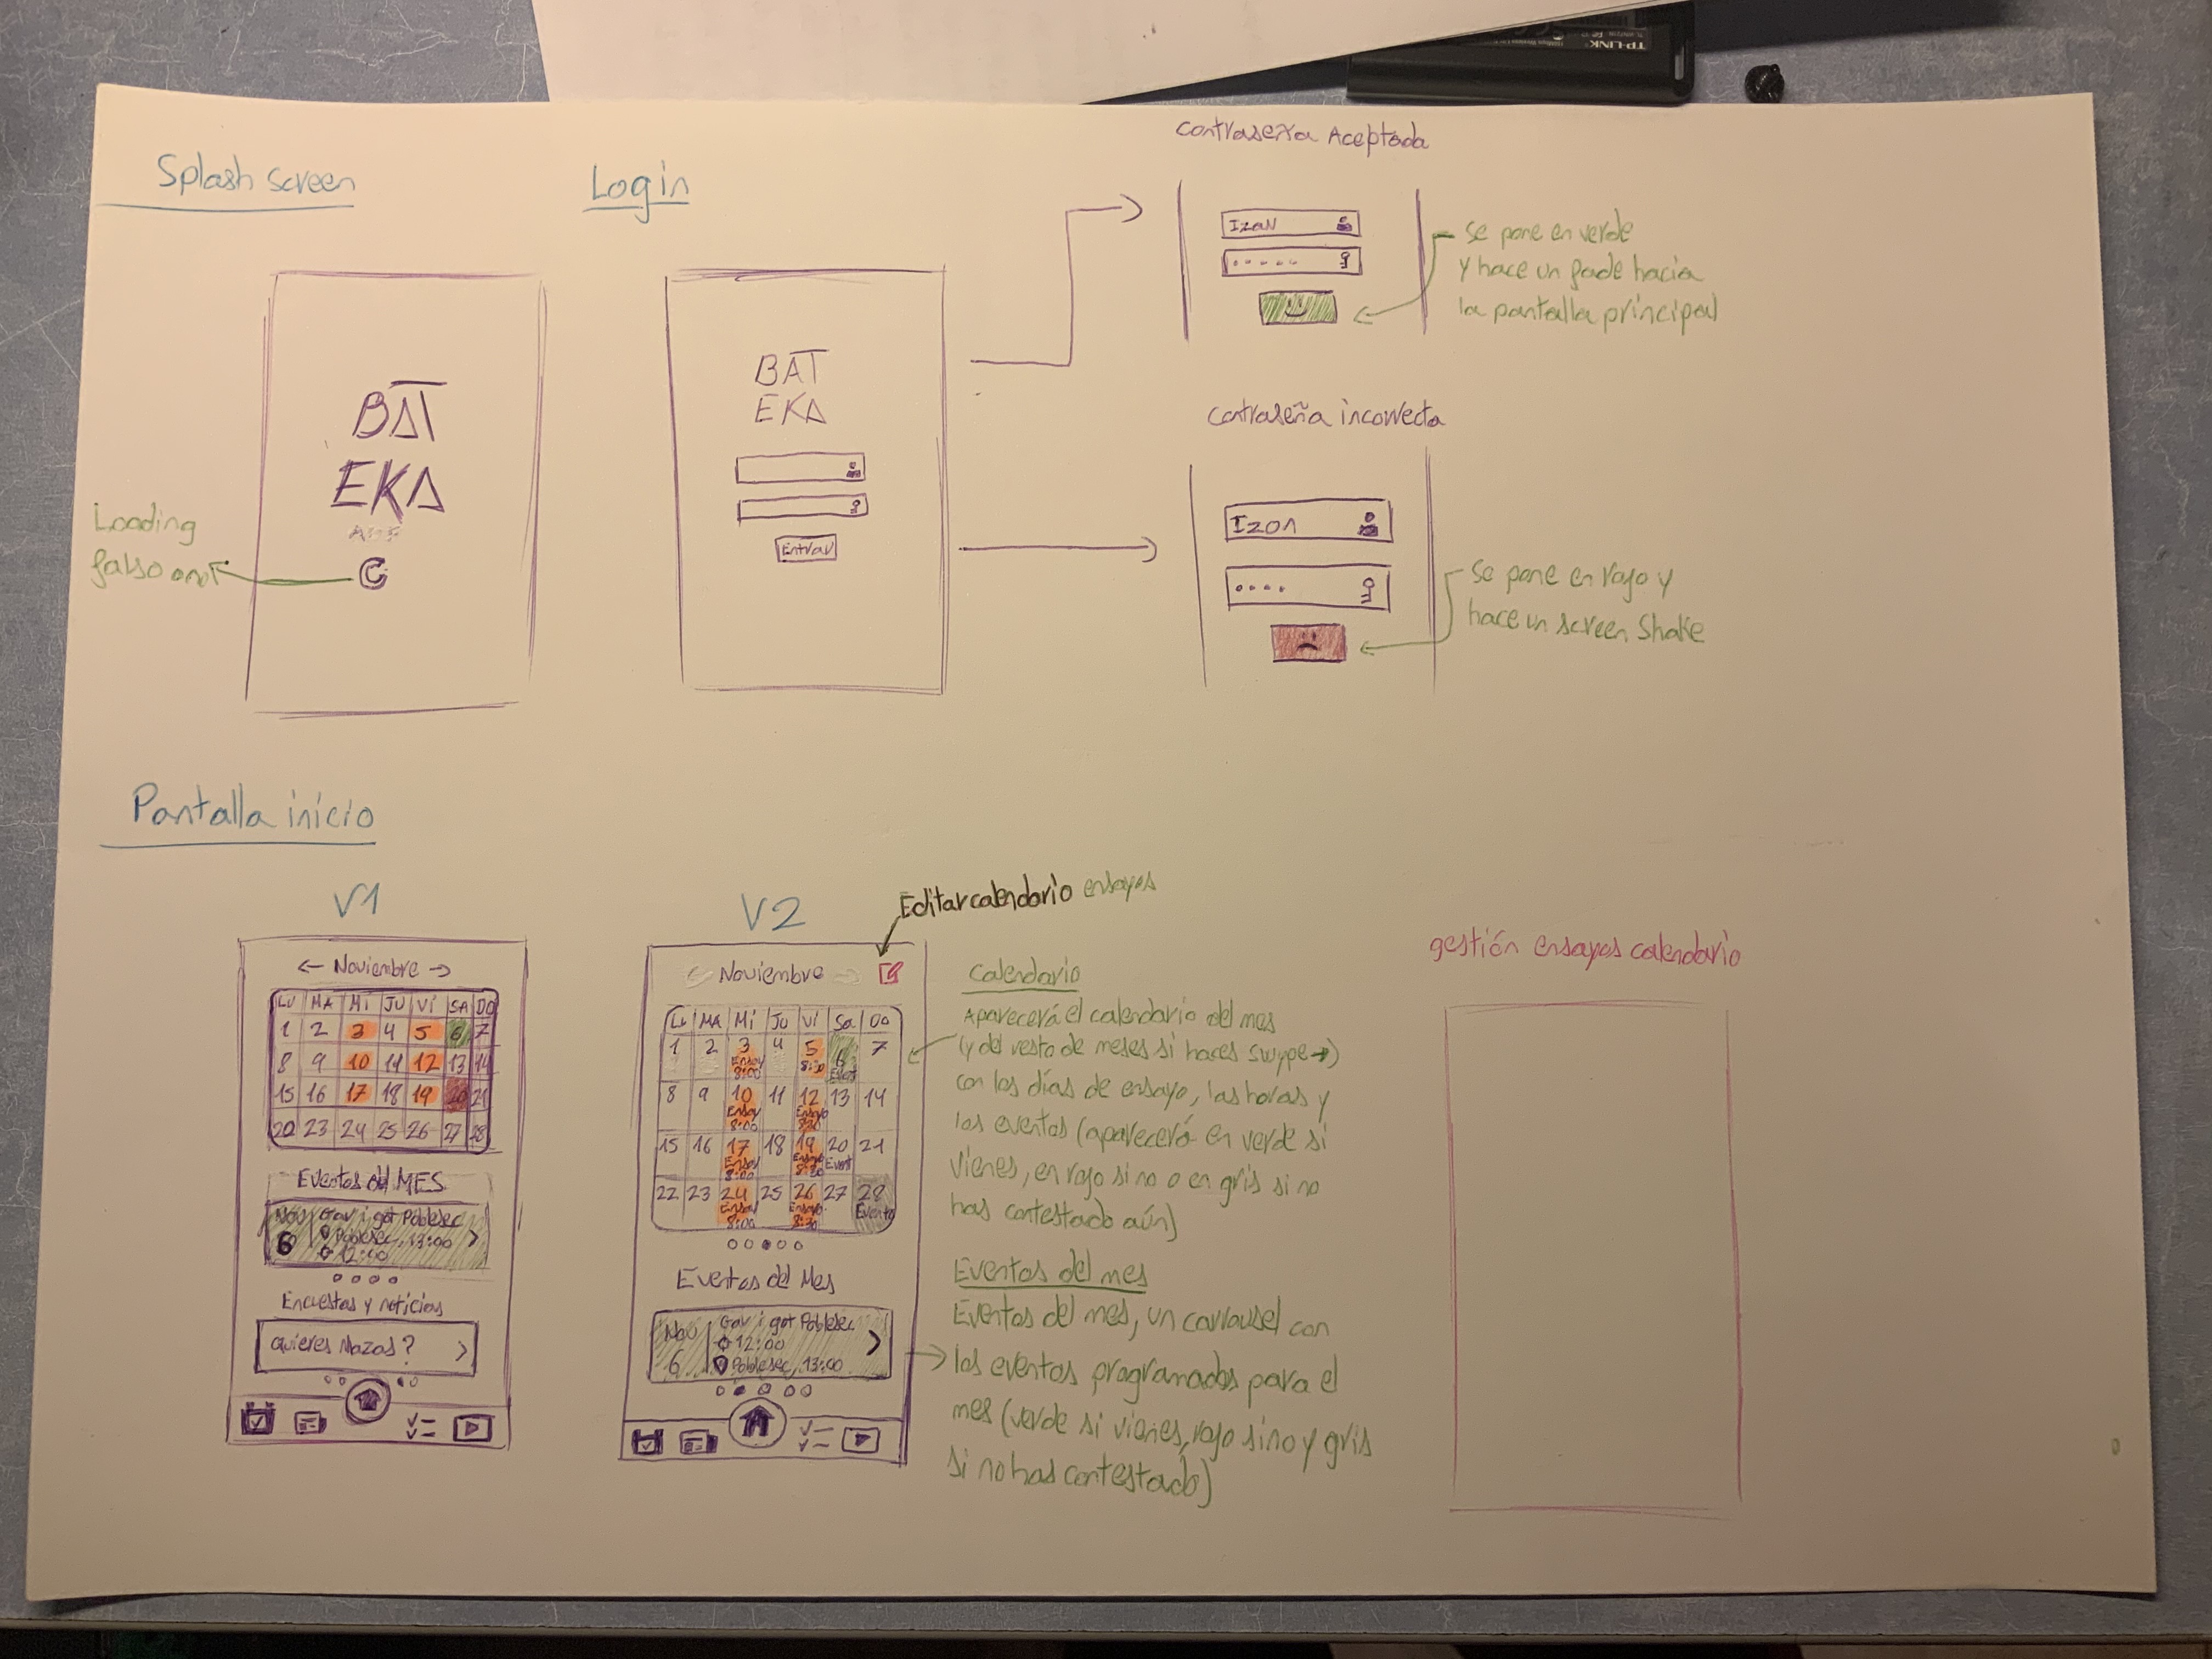 TP-LINK
Splash screen
BAT
EKA
Loading
falso
Login
BAT
EKA
Entrar
contraseña Aceptada
Izan
se pone en verde
y hace un fade hacia
la pantalla principal
contraseña incorrecta
Izan
se pone en rojo y
hace un screen Shake
Pantalla inicio
V1
← Noviembre →
LU MA MI JU VI SA DO
1 2 3 4 5 6 7
8 9 10 11 12 13 14
15 16 17 18 19 20 21
20 23 24 25 26 27 28
Eventos del MES
Nov Gav i got Poblesec
Poblesec, 13:00
6 12:00
Encuestas y noticias
quieres Mazas? >
V2
Editar calendario ensayos
← Noviembre →
LU MA Mi Ju Vi Sa Do
1 2 3 4 5 6 7
Ensay 8:00 8:30 Event
8 9 10 11 12 13 14
Ensay 8:00 Ensayo 8:30
15 16 17 18 19 20 21
Ensay 8:00 Ensayo 8:30 Event
22 23 24 25 26 27 28
Ensay 8:00 Ensayo 8:30 Evento
Eventos del Mes
Nov Gav i got Poblesec
12:00
6 Poblesec, 13:00
Calendario
Aparecerá el calendario del mes
(y del resto de meses si haces swype →)
con los días de ensayo, las horas y
los eventos (aparecerá en verde si
vienes, en rojo si no o en gris si no
has contestado aún)
Eventos del mes
Eventos del mes, un carrousel con
los eventos programados para el
mes (verde si vienes, rojo sino y gris
si no has contestado)
gestión ensayos calendario